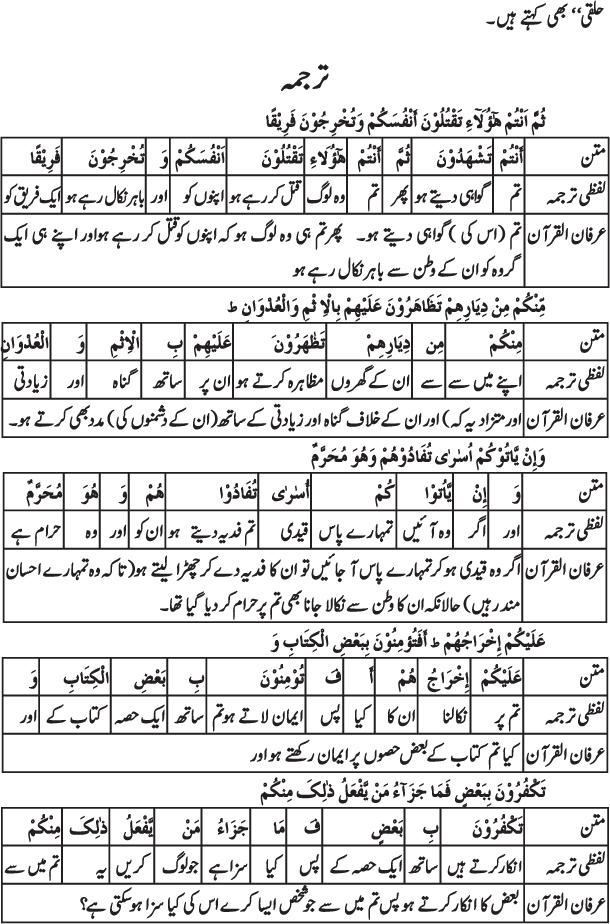 حلقی‘‘ بھی کہتے ہیں۔
ترجمہ
ثُمَّ اَنْتُمْ هٰٓؤُلَآءِ تَقْتُلُوْنَ اَنْفُسَكُمْ وَتُخْرِجُوْنَ فَرِيْقًا
متن اَنْتُمْ تَشْهَدُوْنَ ثُمَّ اَنْتُمْ هٰٓؤُلَاءِ تَقْتُلُوْنَ اَنْفُسَكُمْ وَ تُخْرِجُوْنَ فَرِيْقًا
لفظی ترجمہ تم گواہی دیتے ہو پھر تم وہ لوگ قتل کر رہے ہو اپنوں کو اور باہر نکال رہے ہو ایک فریق کو
عرفان القرآن تم (اس کی) گواہی دیتے ہو۔ پھر تم ہی وہ لوگ ہو کہ اپنوں کو قتل کر رہے ہو اور اپنے ہی ایک
گروہ کو ان کے وطن سے باہر نکال رہے ہو
مِّنْكُمْ مِنْ دِيَارِهِمْ تَظَاهَرُوْنَ عَلَيْهِمْ بِالْاِثْمِ وَالْعُدْوَانِ ط
متن مِنْكُمْ مِن دِيَارِهِمْ تَظٰهَرُوْنَ عَلَيْهِمْ بِ الْاِثْمِ وَ الْعُدْوَانِ
لفظی ترجمہ اپنے میں سے سے ان کے گھروں مظاہرہ کرتے ہو ان پر ساتھ گناہ اور زیادتی
عرفان القرآن اور متزاد یہ کہ) اور ان کے خلاف گناہ اور زیادتی کے ساتھ (ان کے دشمنوں کی) مدد بھی کرتے ہو۔
وَاِنْ يَّاْتُوْكُمْ اُسٰرٰى تُفَادُوْهُمْ وَهُوَ مُحَرَّمٌ
متن وَ اِنْ يَّاْتُوْا كُمْ اُسٰرٰى تُفَادُوْا هُمْ وَ هُوَ مُحَرَّمٌ
لفظی ترجمہ اور اگر وہ آئیں تمہارے پاس قیدی تم فدیہ دیتے ہو ان کو اور وہ حرام ہے
عرفان القرآن اگر وہ قیدی ہو کر تمہارے پاس آ جائیں تو ان کا فدیہ دے کر چھڑا لیتے ہو (تاکہ وہ تمہارے احسان
مند رہیں) حالانکہ ان کا وطن سے نکالا جانا بھی تم پر حرام کر دیا گیا تھا۔
عَلَيْكُمْ اِخْرَاجُهُمْ ط اَفَتُؤْمِنُوْنَ بِبَعْضِ الْكِتَابِ وَ
متن عَلَيْكُمْ اِخْرَاجُ هُمْ اَ فَ تُوْمِنُوْنَ بِ بَعْضِ الْكِتَابِ وَ
لفظی ترجمہ تم پر نکالنا ان کا کیا پس ایمان لاتے ہو تم ساتھ ایک حصہ کتاب کے اور
عرفان القرآن کیا تم کتاب کے بعض حصوں پر ایمان رکھتے ہو اور
تَكْفُرُوْنَ بِبَعْضٍ فَمَا جَزَآءُ مَنْ يَّفْعَلُ ذٰلِكَ مِنْكُمْ
متن تَكْفُرُوْنَ بِ بَعْضٍ فَ مَا جَزَاءُ مَنْ يَّفْعَلُ ذٰلِكَ مِنْكُمْ
لفظی ترجمہ انکار کرتے ہیں ساتھ ایک حصہ کے پس کیا سزا ہے جو لوگ کریں یہ تم میں سے
عرفان القرآن بعض کا انکار کرتے ہو پس تم میں سے جو شخص ایسا کرے اس کی کیا سزا ہو سکتی ہے؟